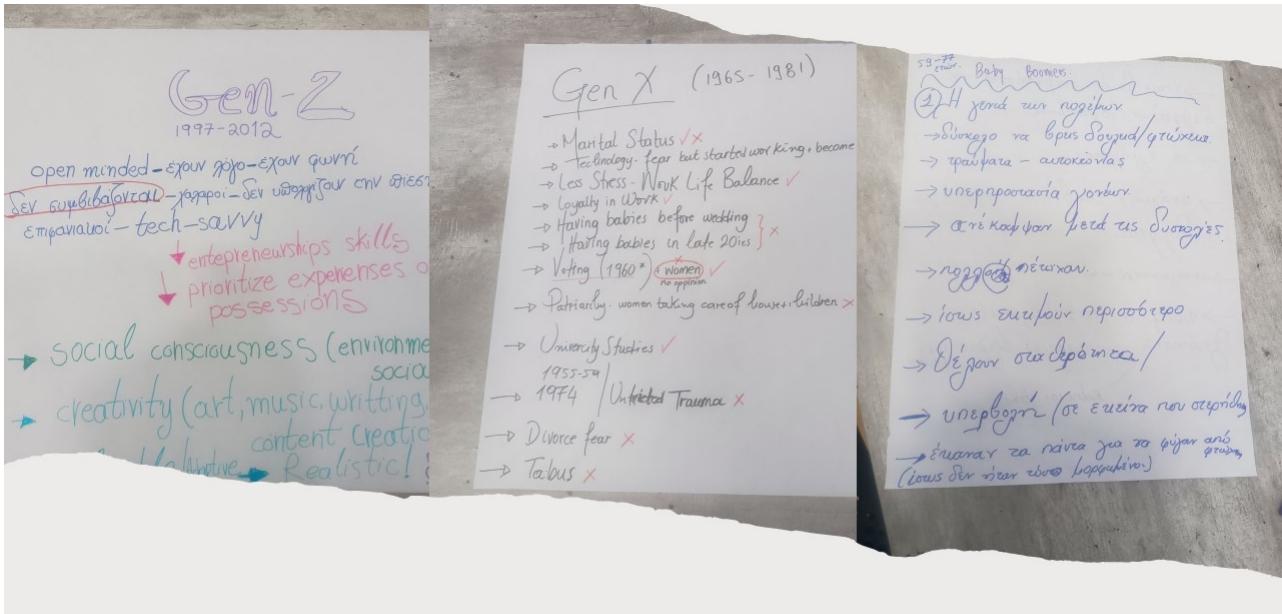 Gen-Z
1997-2012
open minded - έχουν λόγο - έχουν φωνή
δεν συμβιβάζονται - χαλαροί - δεν υπολογίζουν την
επιφανιακοί - tech-savvy
entepreneurships skills
prioritize experienses o
possessions
→ social consciousness (environme
socia
→ creativity (art, music, writting,
content creatio
→ Realistic!
Gen X (1965-1981)
→ Marital Status ✓×
→ Technology. fear but started working + become
→ Less Stress - Work Life Balance ✓
→ Loyalty in Work ✓
→ Having babies before wedding
→ Having babies in late 20ies } ×
→ Voting (1960*) + women ✓
no oppinion
→ Patriarchy. women taking care of house + children ×
→ University Studies ✓
1955-59
→ 1974 / Trauma ×
→ Divorce fear ×
→ Tabus ×
59-77
ετών. Baby Boomers.
1) Η γενιά των πολέμων
→ δύσκολο να βρεις δουλειά/φτώχεια
→ τραύματα - αυτοκτονίας
→ υπερπροστασία γονέων
→ ανέκαμψαν μετά τις δυσκολίες.
→ πέτυχαν.
→ ίσως εκτιμούν περισσότερο
→ Θέλουν σταθερότητα/
→ υπερβολή (σε εκείνα που στερήθη
→ έκαναν τα πάντα για να φύγαν από φτώχεια
(ίσως δεν ήταν τόσο μορφωμένοι)